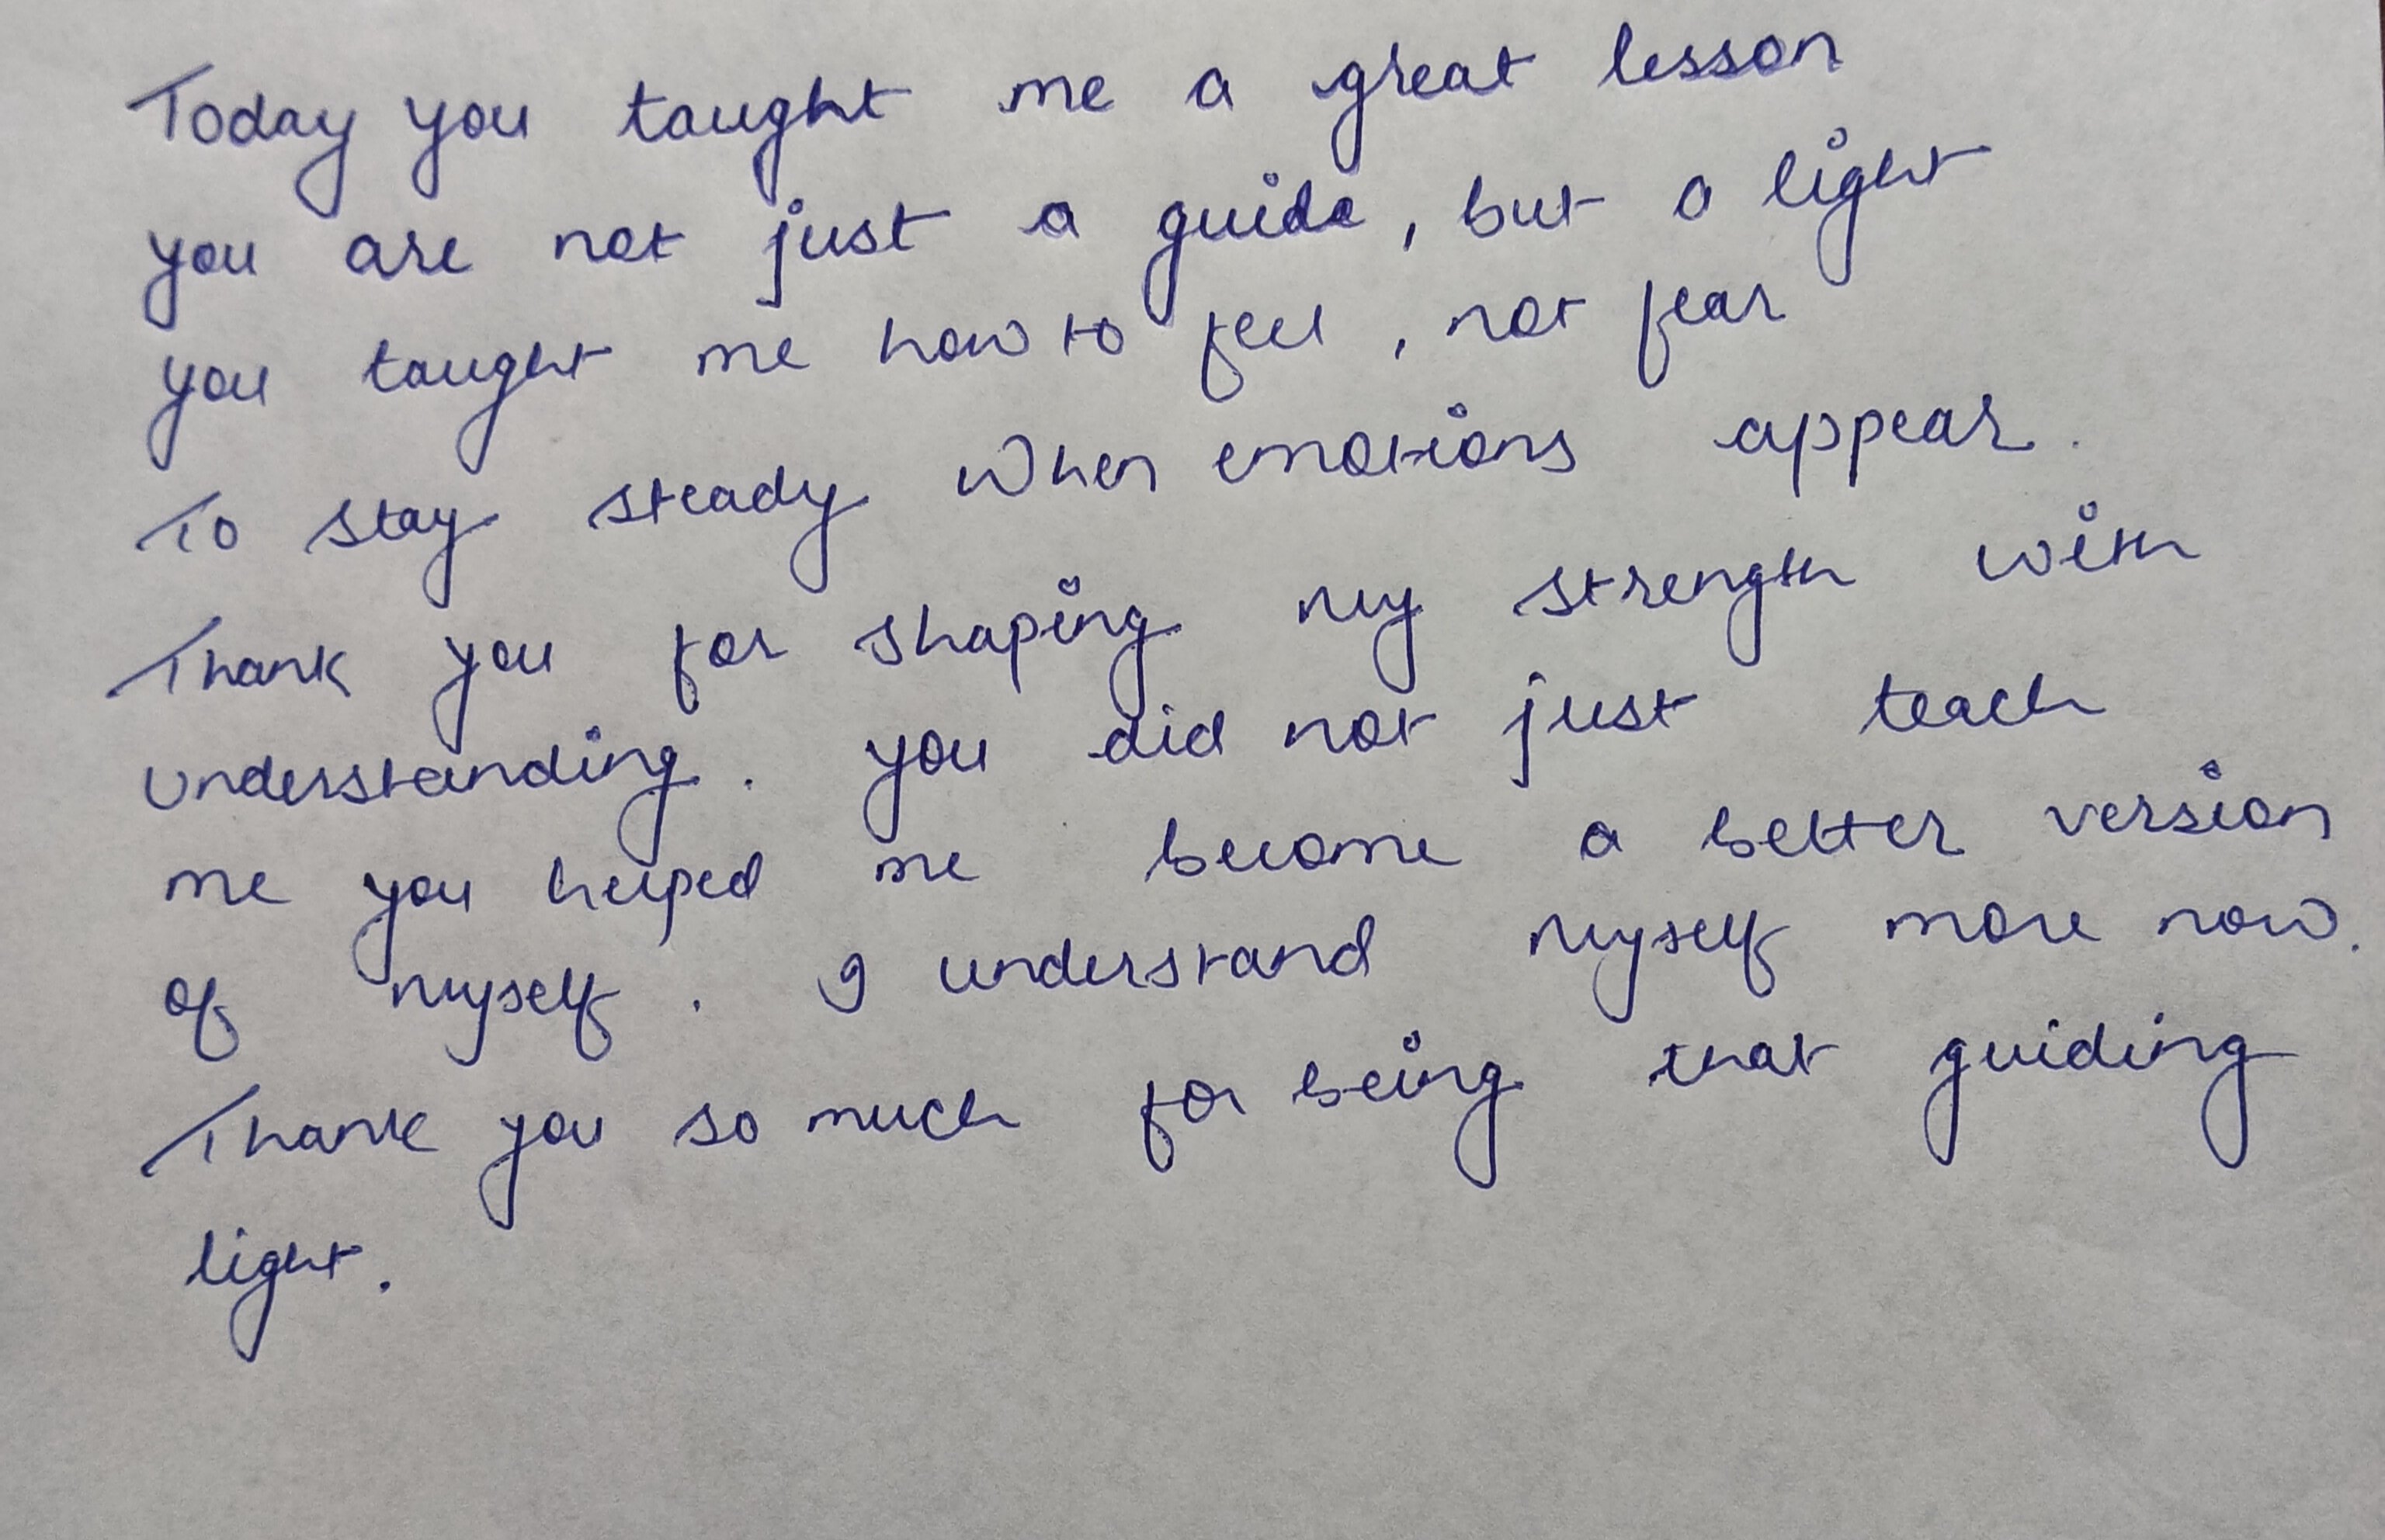 Today you taught me a great lesson
you are not just a guide, but a light
you taught me how to feel, not fear
To stay steady when emotions appear.
Thank you for shaping my strength with
understanding. you did not just teach
me you helped me become a better version
of myself. I understand myself more now.
Thank you so much for being that guiding
light.